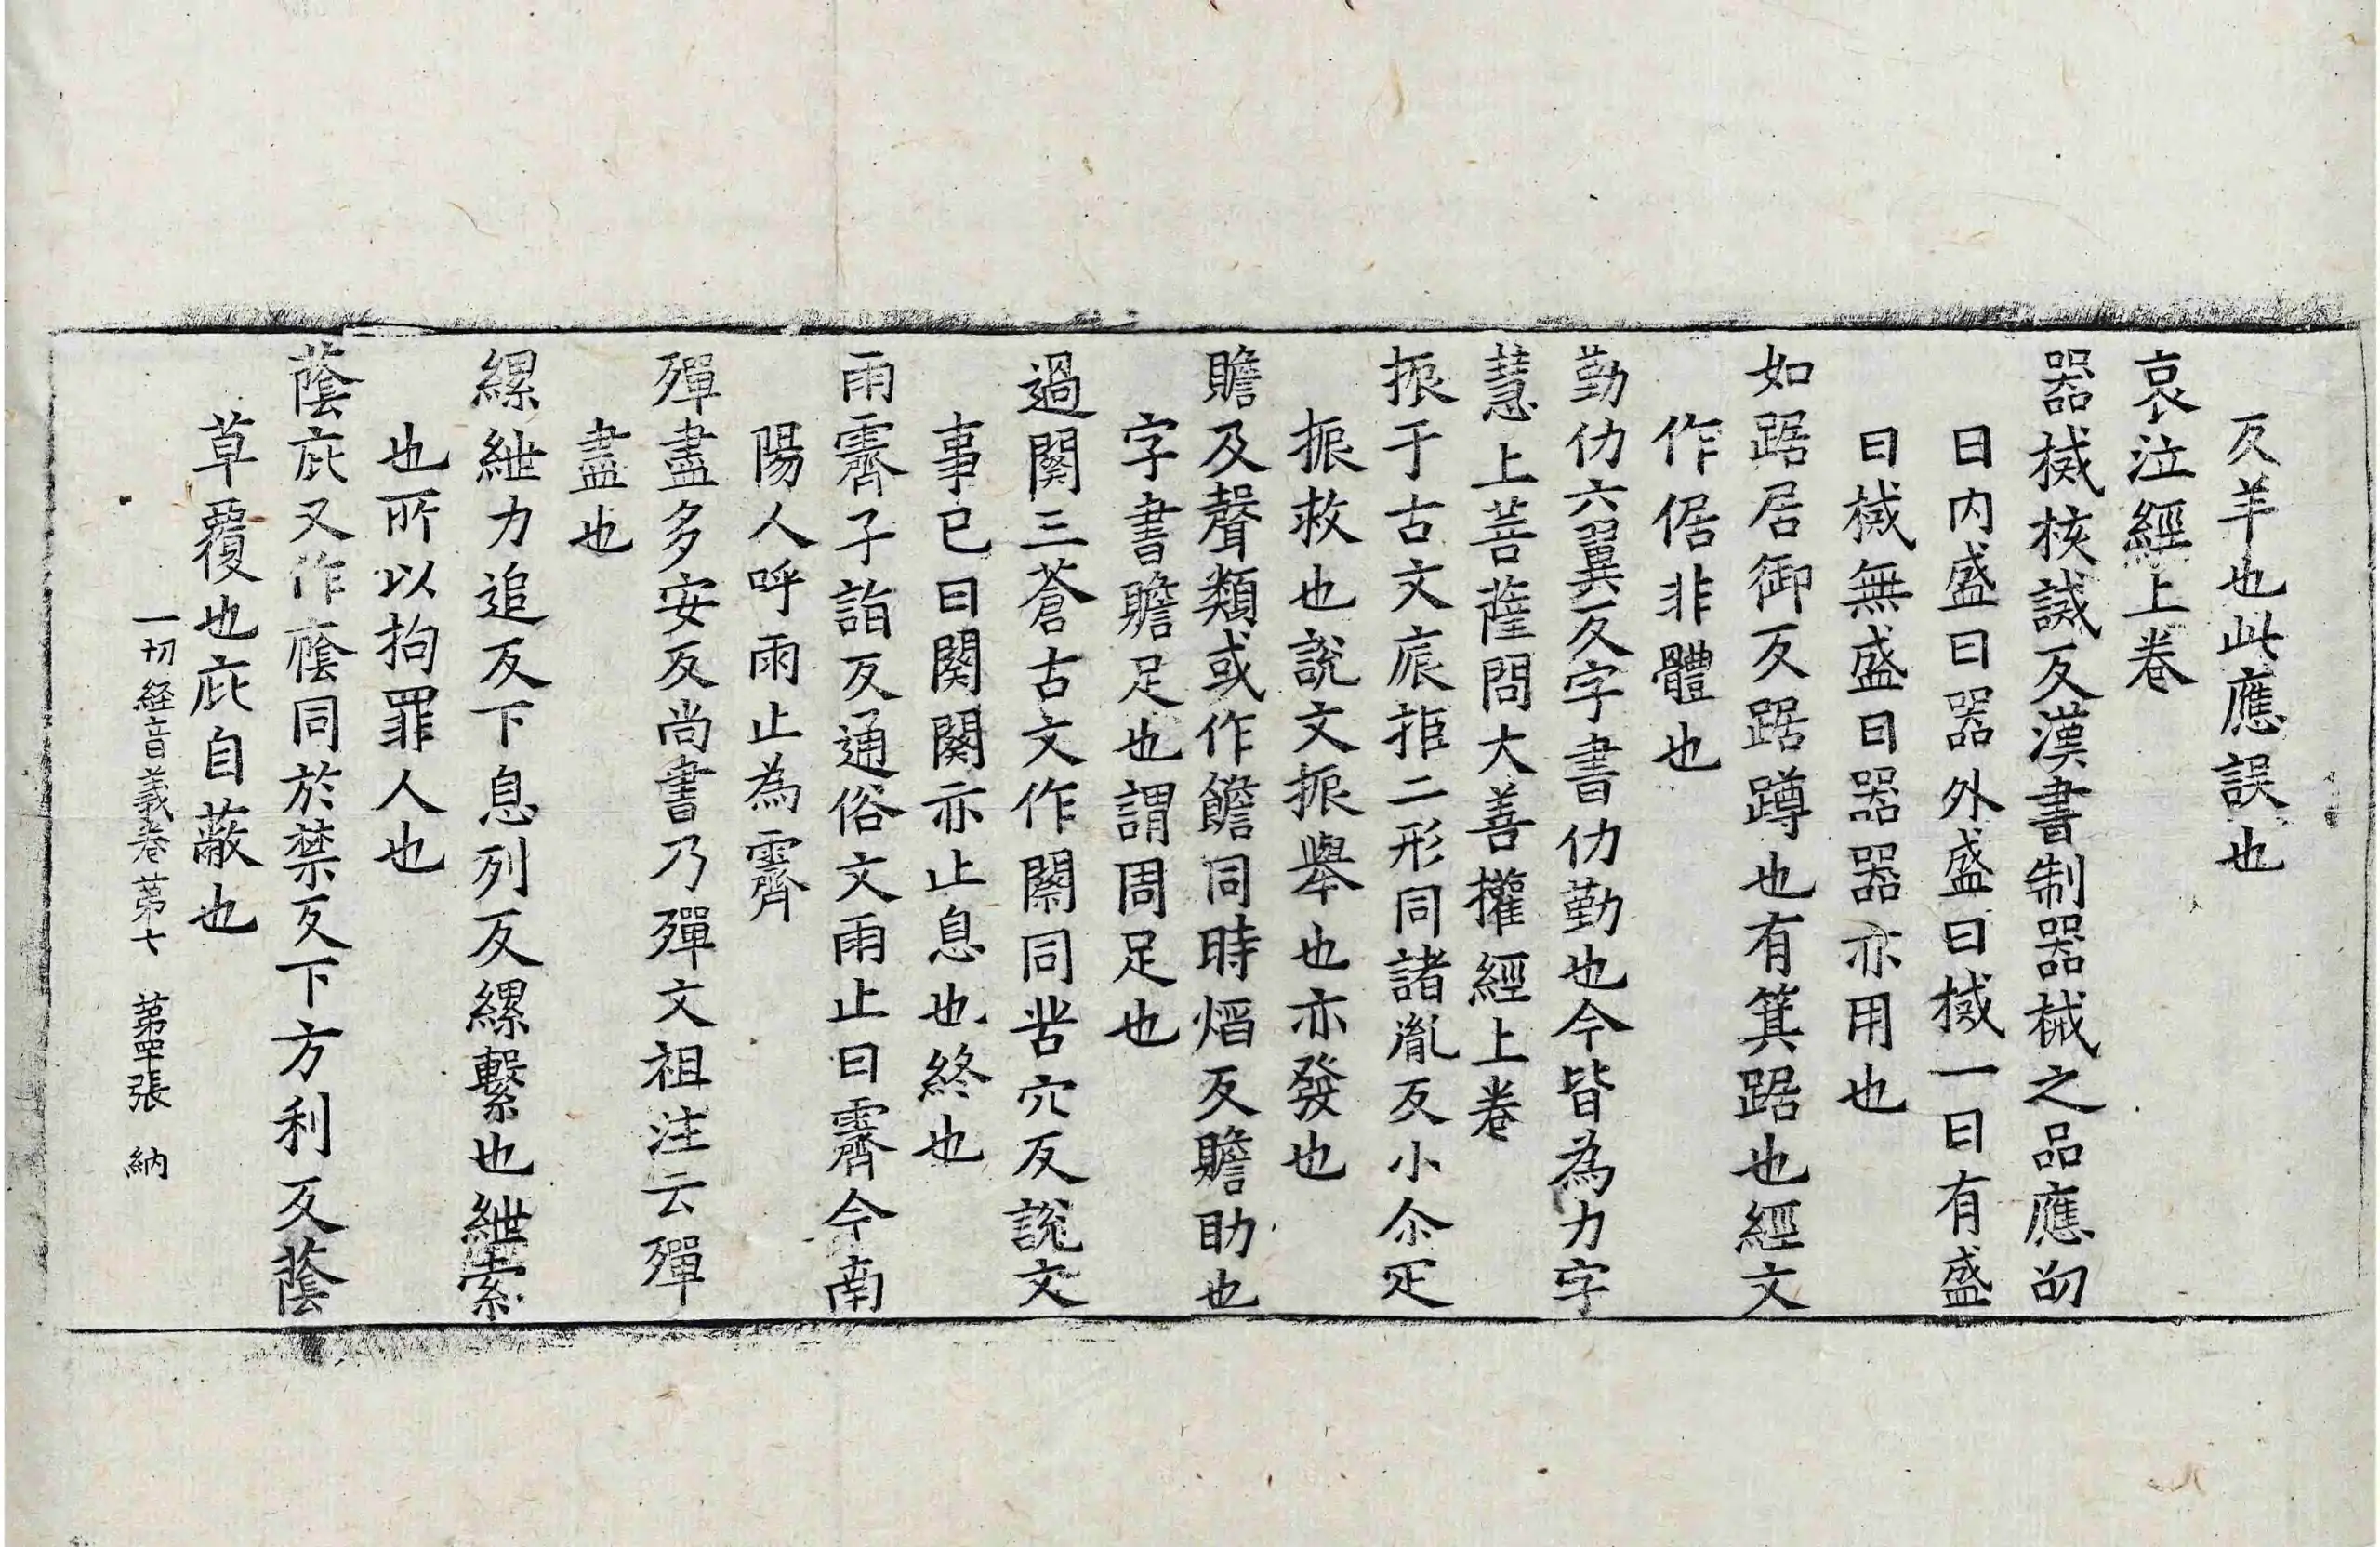 反羊也此應誤也
哀泣經上卷
器椷核誡反漢書制器械之品應劭
曰内盛曰器外盛曰椷一曰有盛
曰椷無盛曰器器亦用也
如踞居御反踞蹲也有箕踞也經文
作倨非體也
勤仂六翼反字書仂勤也今皆為力字
慧上菩薩問大善權經上卷
振于古文宸㧗二形同諸胤反小尒疋
振救也說文振舉也亦發也
贍及聲類或作饍同時焰反贍助也
字書贍足也謂周足也
過闋三蒼古文作闋同苦穴反說文
事已曰闋闋亦止息也終也
雨霽子詣反通俗文雨止曰霽今南
陽人呼雨止為霽
殫盡多安反尚書乃殫文祖注云殫
盡也
縲紲力追反下息列反縲繫也紲索
也所以拘罪人也
蔭庇又作廕同於禁反下方利反蔭
草覆也庇自蔽也
一切経音義卷苐七 苐罕張 納